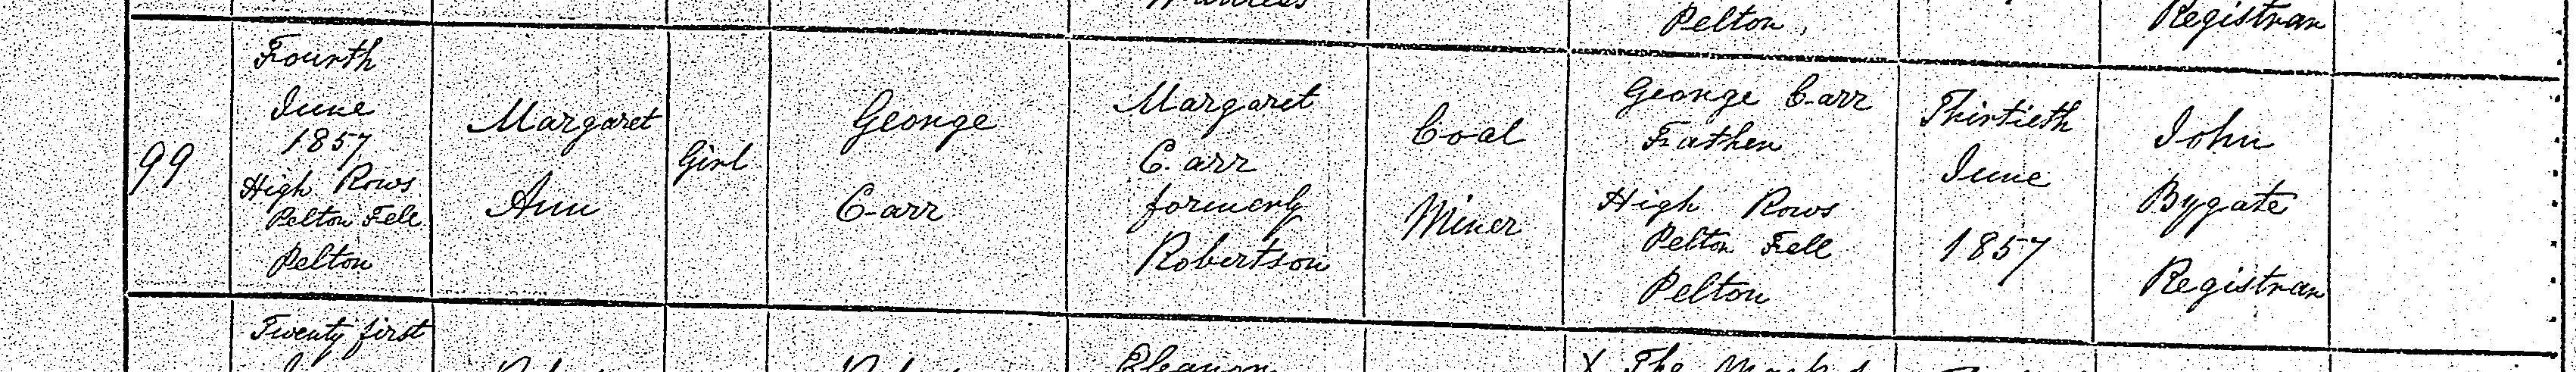 Pelton,
Registrar
99
Fourth
June
1857
High Rows
Pelton Fell
Pelton
Margaret
Ann
Girl
George
Carr
Margaret
Carr
formerly
Robertson
Coal
Miner
George Carr
Father
High Rows
Pelton Fell
Pelton
Thirtieth
June
1857
John
Bygate
Registrar
Twenty first
Eleanor
X The Mark of